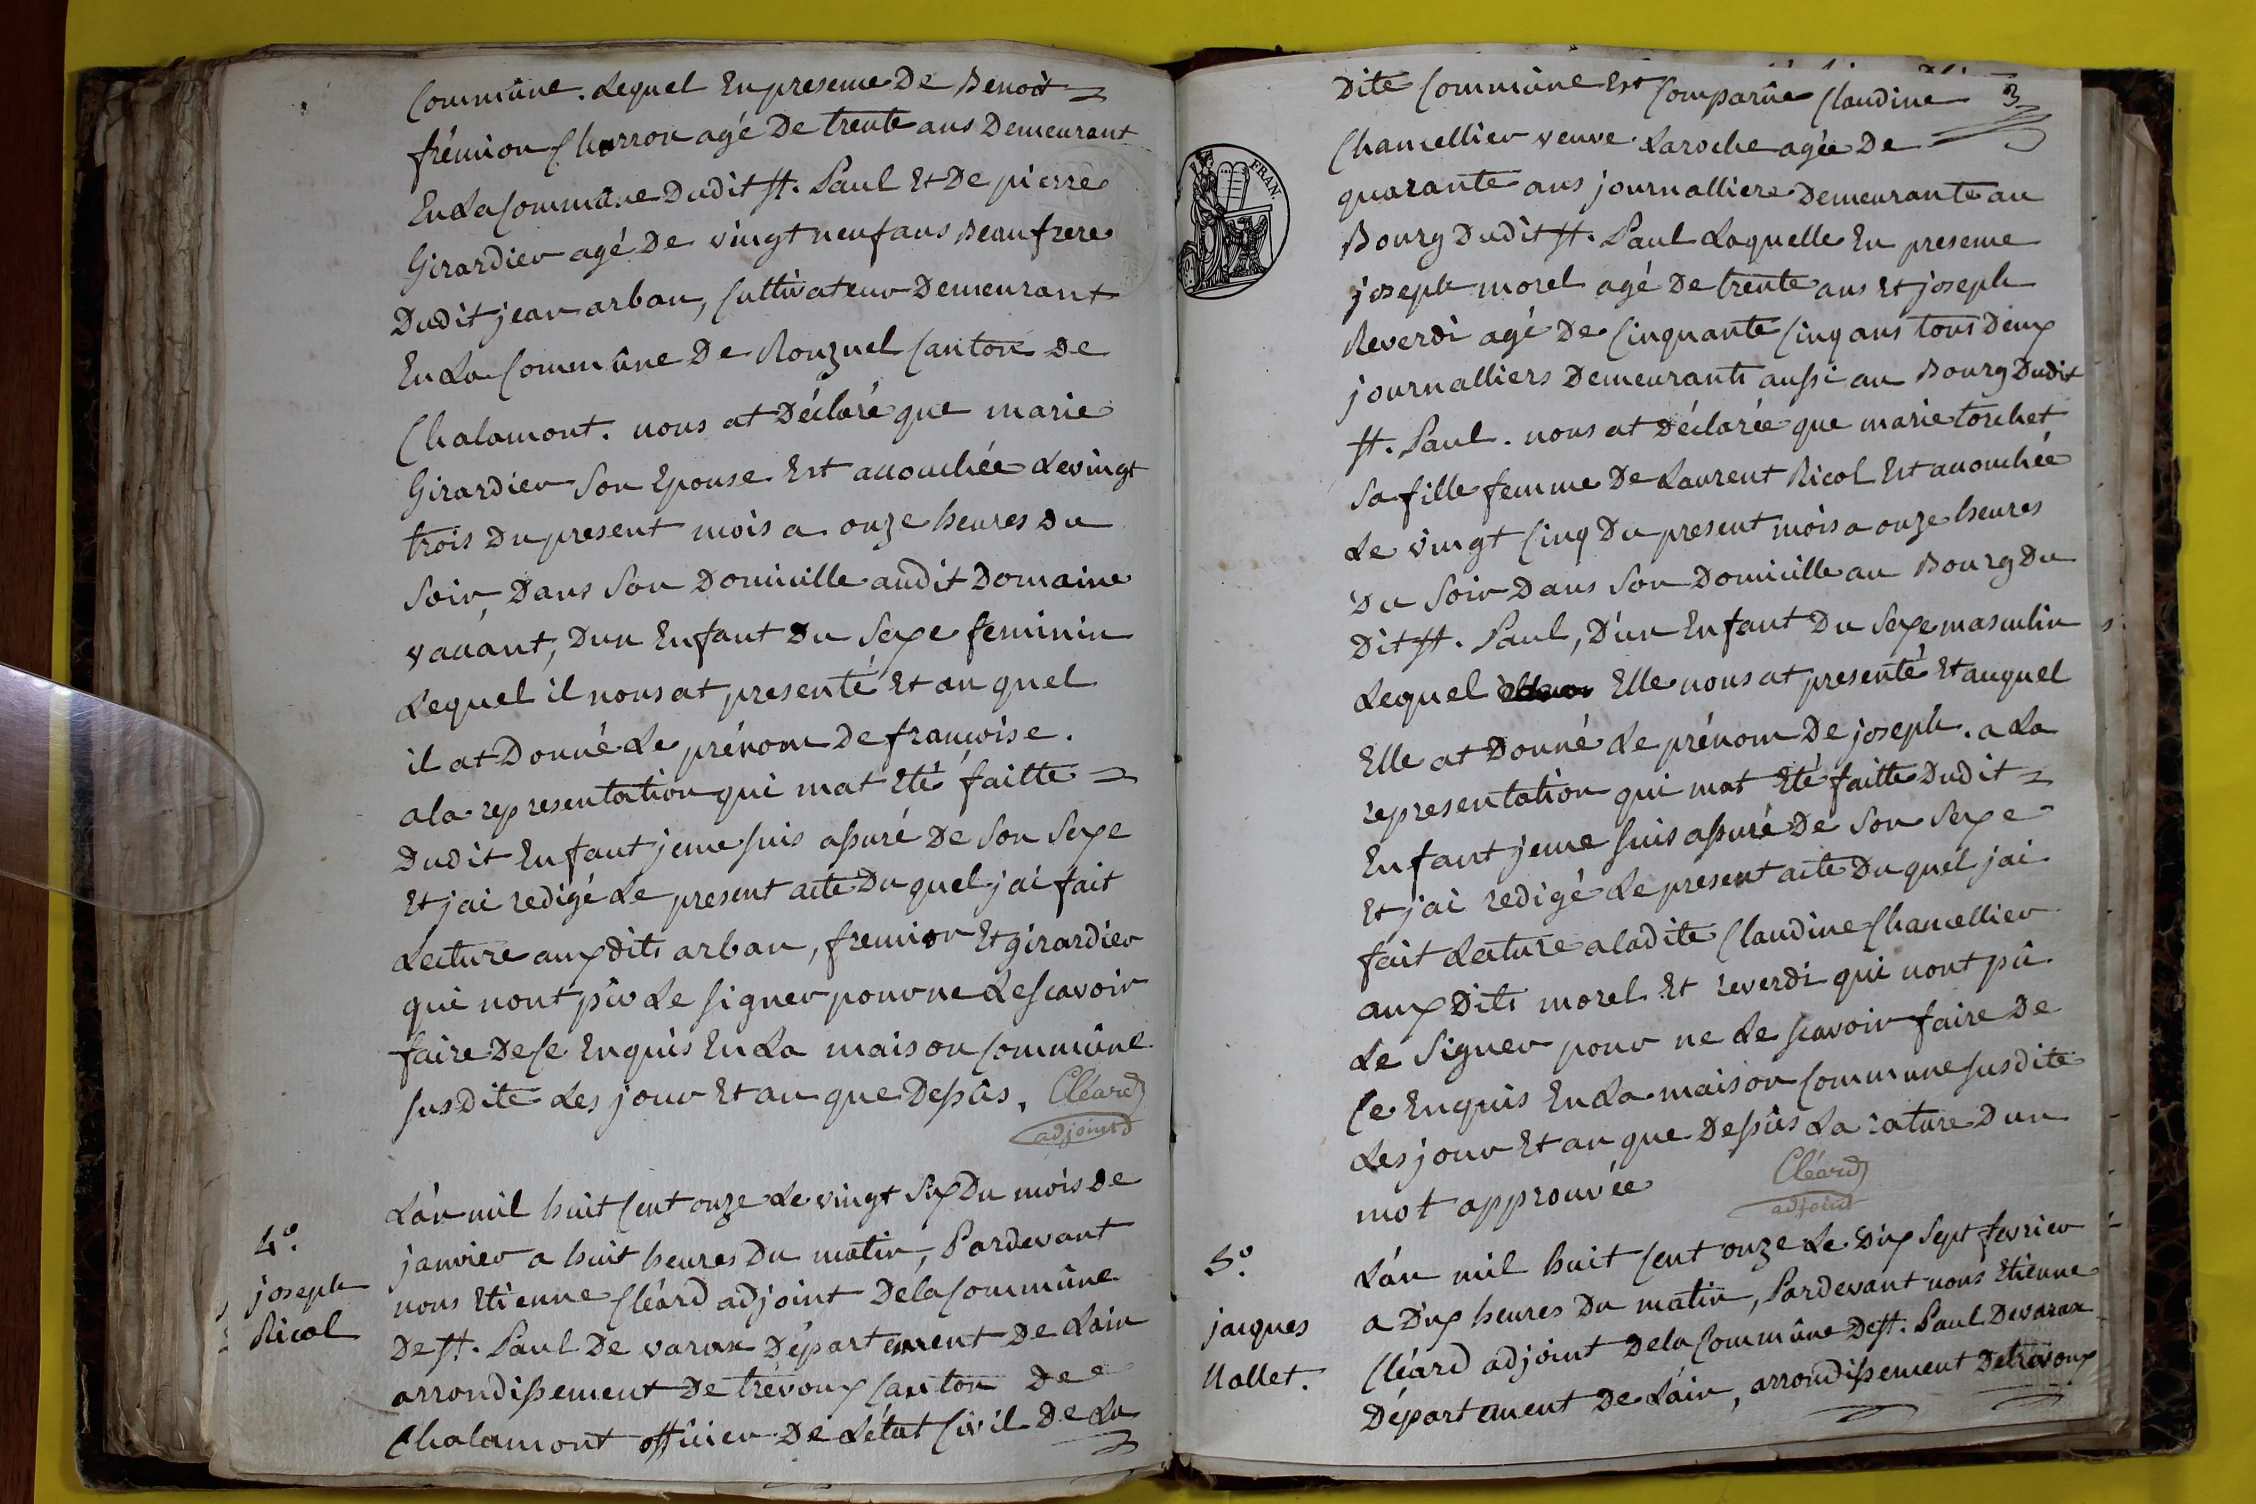 Commune. Lequel En presence De Benoit
frémion Charron agé De trente ans Demeurant
En La Commune Dudit St. Paul Et De pierre
Girardier agé De vingt neuf ans Beaufrere
Dudit jean arban, Cultivateur Demeurant
En La Commune De Ronzuel Canton De
Chalamont. nous at Déclaré que marie
Girardier Son Epouse Est accouchée Le vingt
trois Du present mois a onze heures Du
Soir, Dans Son Domicille audit Domaine
vacant, Dun Enfant Du Sexe feminin
Lequel il nous at presenté Et au quel
il at Donné Le prénom De francoise.
a la representation qui mat Eté faitte
Dudit Enfant je me suis assuré De Son Sexe
Et jai redigé Le present acte Du quel jai fait
Lecture aux dits arban, fremion Et girardier
qui nont pû Le Signer pour ne Le scavoir
faire De Ce Enquis En La maison Commûne
susdite Les jour Et an que Dessûs. Cléard
adjoint
4°.
joseph
Ricol
L'an mil huit Cent onze Le vingt Six Du mois De
janvier a huit heures Du matin, Pardevant
nous Etienne Cléard adjoint De la Commûne
De St. Paul De varax Département De Lain
arrondissement De trévoux Canton De
Chalamont officier De L'état Civil De La
Dite Commûne Est Comparûe Claudine
3
Chancellier veuve Laroche agée De
quarante ans journalliere Demeurante au
Bourg Dudit St. Paul Laquelle En presence
FRAN.
joseph morel agé De trente ans Et joseph
Reverdi agé De Cinquante Cinq ans tous Deux
journalliers Demeurants aussi au Bourg Dudit
St. Paul. nous at Déclarée que marie torchet
Sa fille femme De Laurent Ricol Est accouchée
Le vingt Cinq Du present mois a onze heures
Du Soir Dans Son Domicille au Bourg Du
Dit St. Paul, D'un Enfant Du Sexe masculin
Lequel Elle nous at presenté Et auquel
Elle at Donné Le prénom De joseph. a La
representation qui mat Eté faitte Dudit
Enfant je me suis assuré De Son Sexe
Et jai redigé Le present acte Du quel jai
fait Lecture a la dite Claudine Chancellier
aux Dits morel Et reverdi qui nont pû
Le Signer pour ne Le scavoir faire De
Ce Enquis En La maison Commune susdite
Les jour Et an que Dessûs La rature Dun
mot approuvée Cléard
adjoint
5°.
jacques
Mallet.
L'an mil huit Cent onze Le Dix Sept fevrier
a Dix heures Du matin, Pardevant nous Etienne
Cléard adjoint De la Commûne De St. Paul De varax
Département De Lain, arrondissement De trévoux